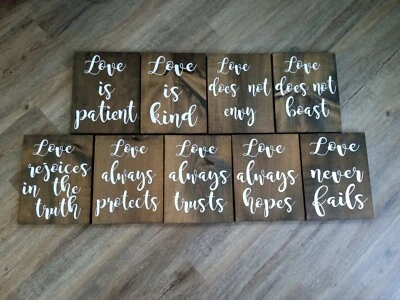 Love
is
patient
Love
is
kind
Love
does not
envy
Love
does not
boast
Love
rejoices
in the
truth
Love
always
protects
Love
always
trusts
Love
always
hopes
Love
never
fails